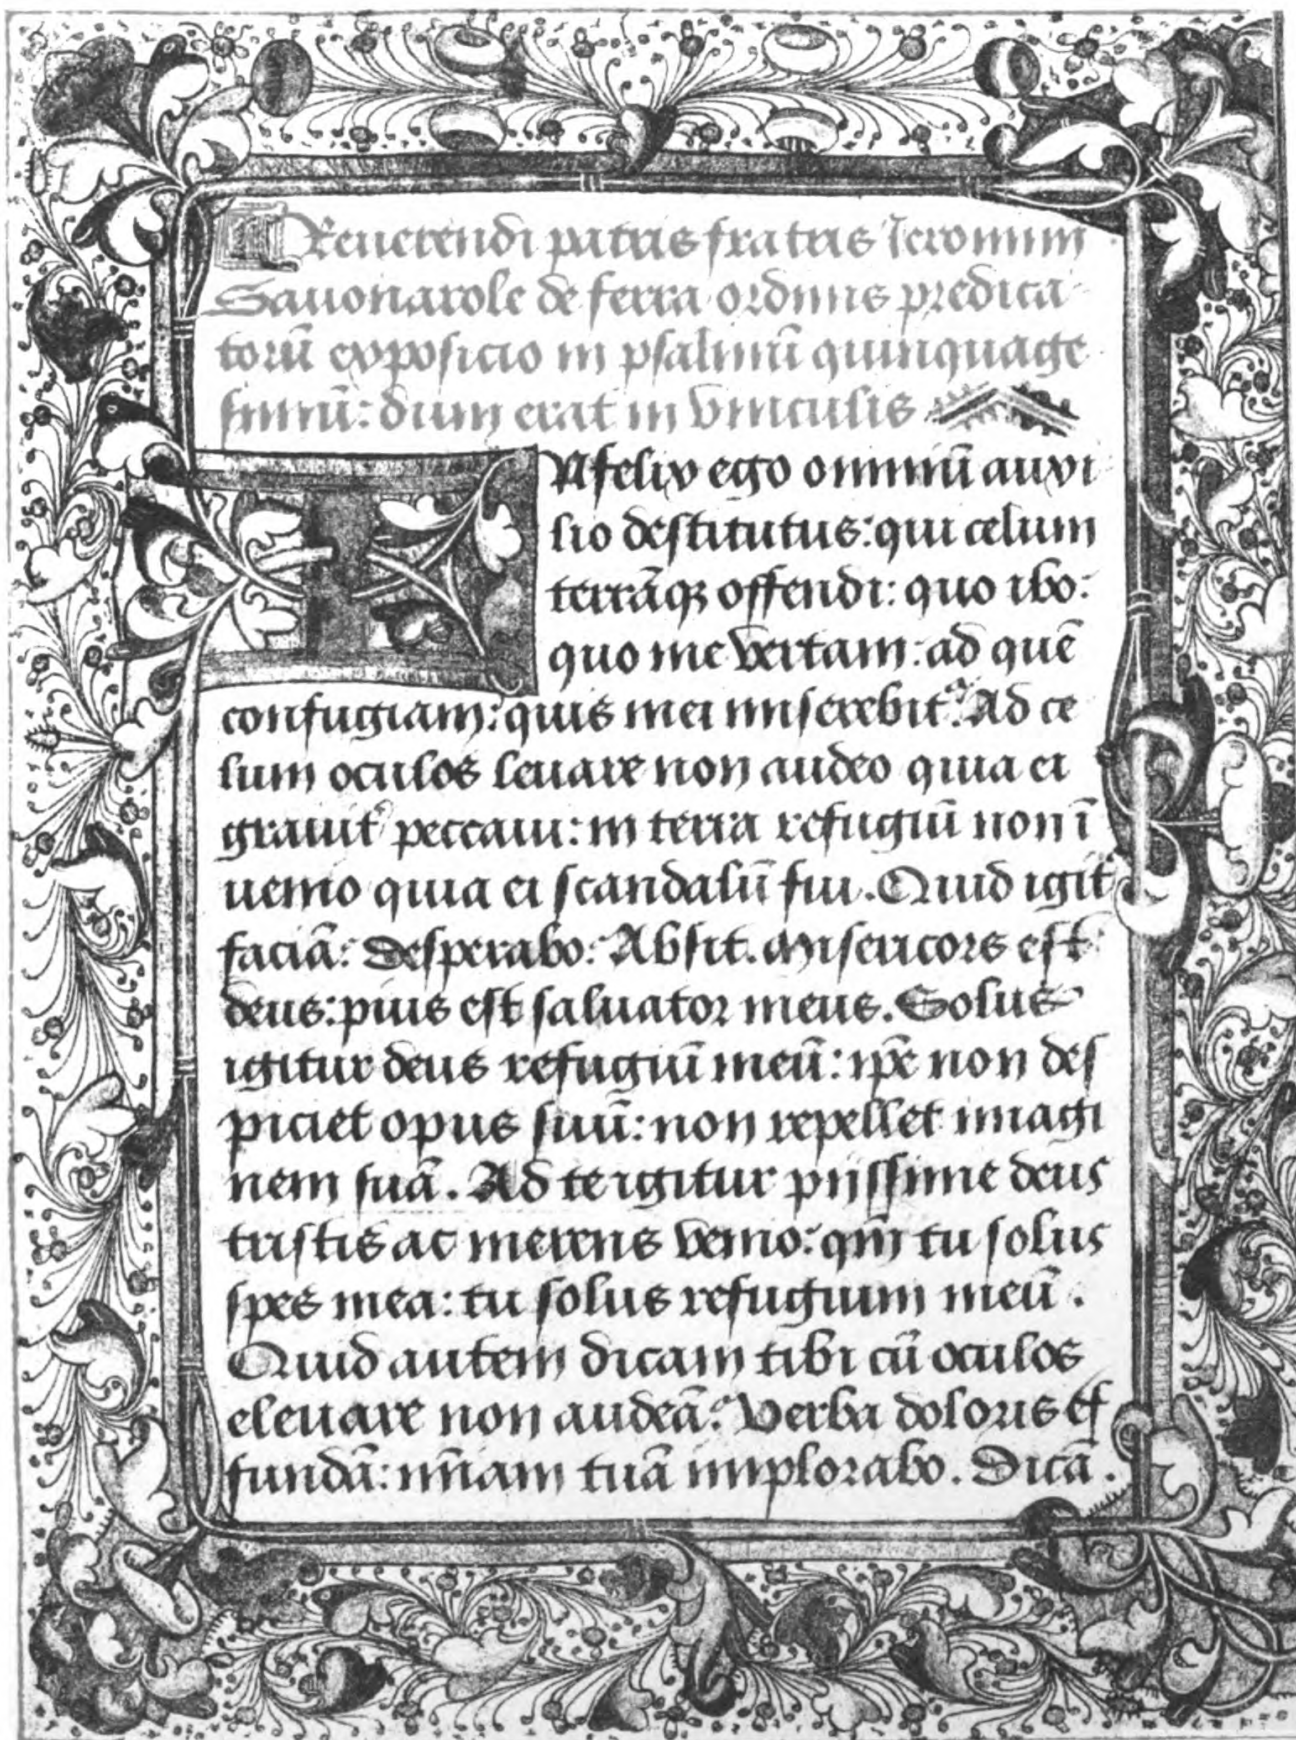 Reuerendi patris fratris Ieronimi
Sauonarole de ferra ordinis predica
torū exposicio in psalmū quinquage
simū: dum erat in vinculis
INfelix ego omniū auxi
lio destitutus: qui celum
terrāqꝫ offendi: quo ibo:
quo me vertam: ad quē
confugiam: quis mei miserebit᷑? Ad ce
lum oculos leuare non audeo quia ei
grauit᷑ peccaui: in terra refugiū non ī
uenio quia ei scandalū fui. Quid igit᷑
faciā: desperabo: Absit. Misericors est
deus: pius est saluator meus. Solus
igitur deus refugiū meū: ip̄e non des
piciet opus suū: non repellet imagi
nem suā. Ad te igitur piissime deus
tristis ac merens venio: qm̄ tu solus
spes mea: tu solus refugium meū.
Quid autem dicam tibi cū oculos
eleuare non audeā? Verba doloris ef
fundā: mīam tuā implorabo. Dicā.